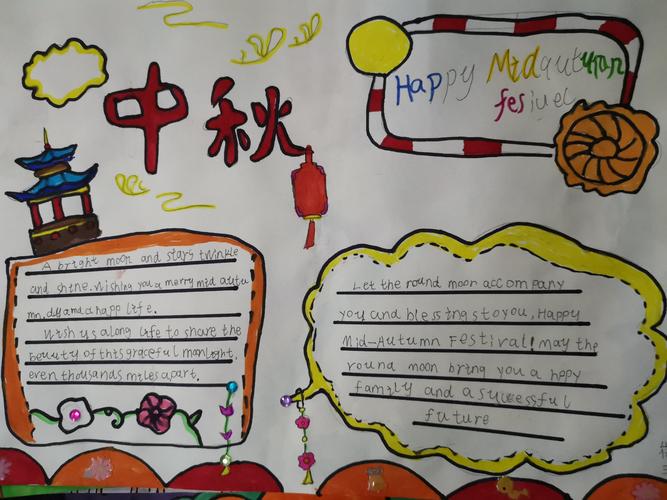 中秋
Happy Midqutupan
fesivel
A bright moon and stars twinkle
and shine. Wishing you a merry mid autu
mn, dy and a happ life.
Wish us along life to share the
beauty of this graceful moonlight,
even thousands miles apart.
Let the round moon accompany
you and blessing stoyou, Happy
Mid-Autumn Festival! may the
round moon bring you a hppy
family and a sucessful
future